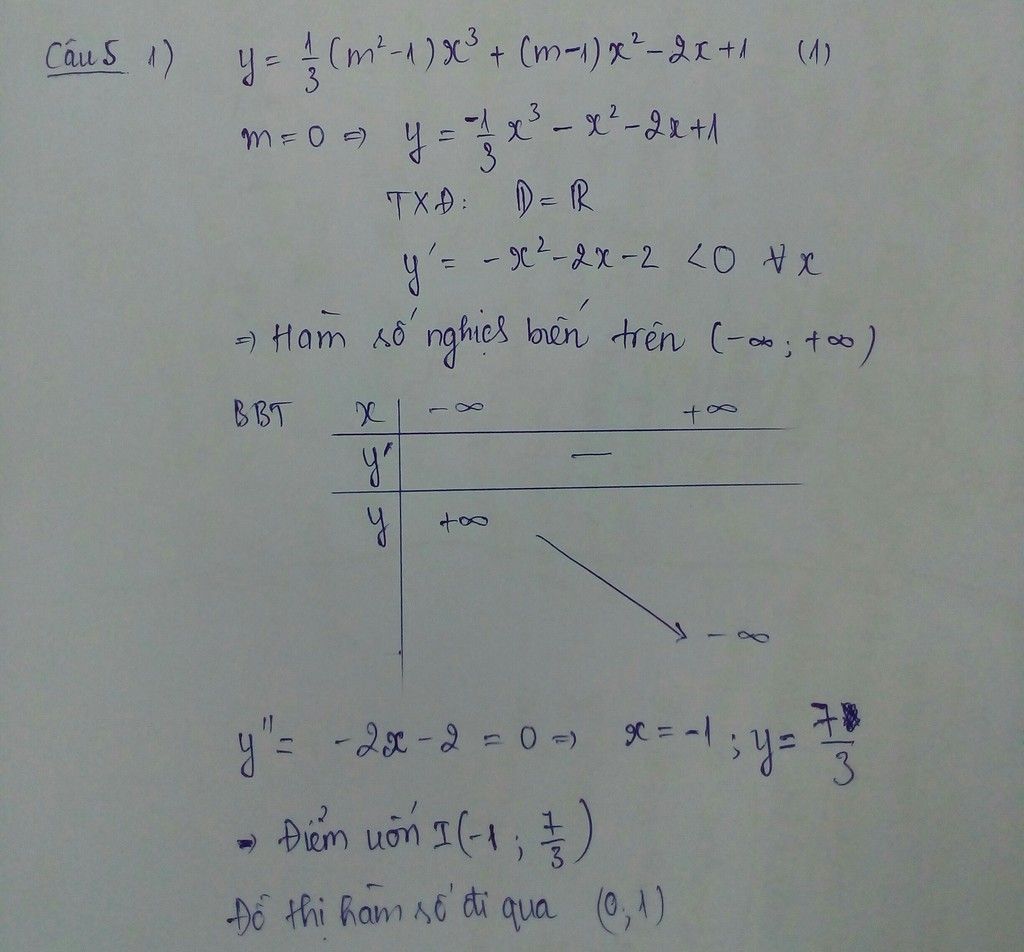 Câu 5 1) y = 1/3 (m² - 1)x³ + (m-1)x² - 2x + 1 (1)
m = 0 ⇒ y = -1/3 x³ - x² - 2x + 1
TXĐ: D = ℝ
y' = -x² - 2x - 2 < 0 ∀x
⇒ Hàm số nghịch biến trên (-∞; +∞)
BBT x -∞ +∞
y' —
y +∞
-∞
y'' = -2x - 2 = 0 ⇒ x = -1 ; y = 7/3
→ Điểm uốn I(-1 ; 7/3)
Đồ thị hàm số đi qua (0,1)